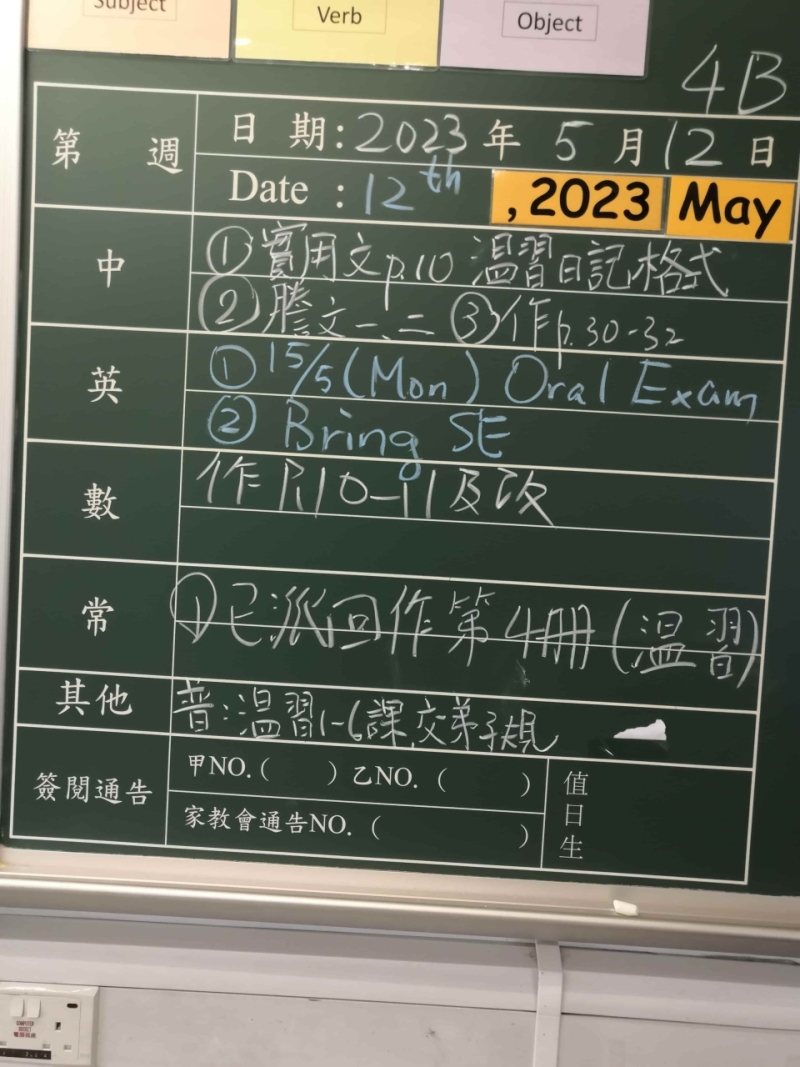 Subject
Verb
Object
4B
第 週
日 期:2023 年 5 月 12 日
Date : 12th , 2023 May
中
①實用文p.10 溫習日記格式
②謄文一、二 ③作p.30-32
英
① 15/5 (Mon) Oral Exam
② Bring SE
數
作P.10-11及改
常
①已派回作第4冊(溫習)
其他
普:溫習1-6課,交弟子規
簽閱通告
甲NO.( ) 乙NO. ( )
家教會通告NO. ( )
值日生